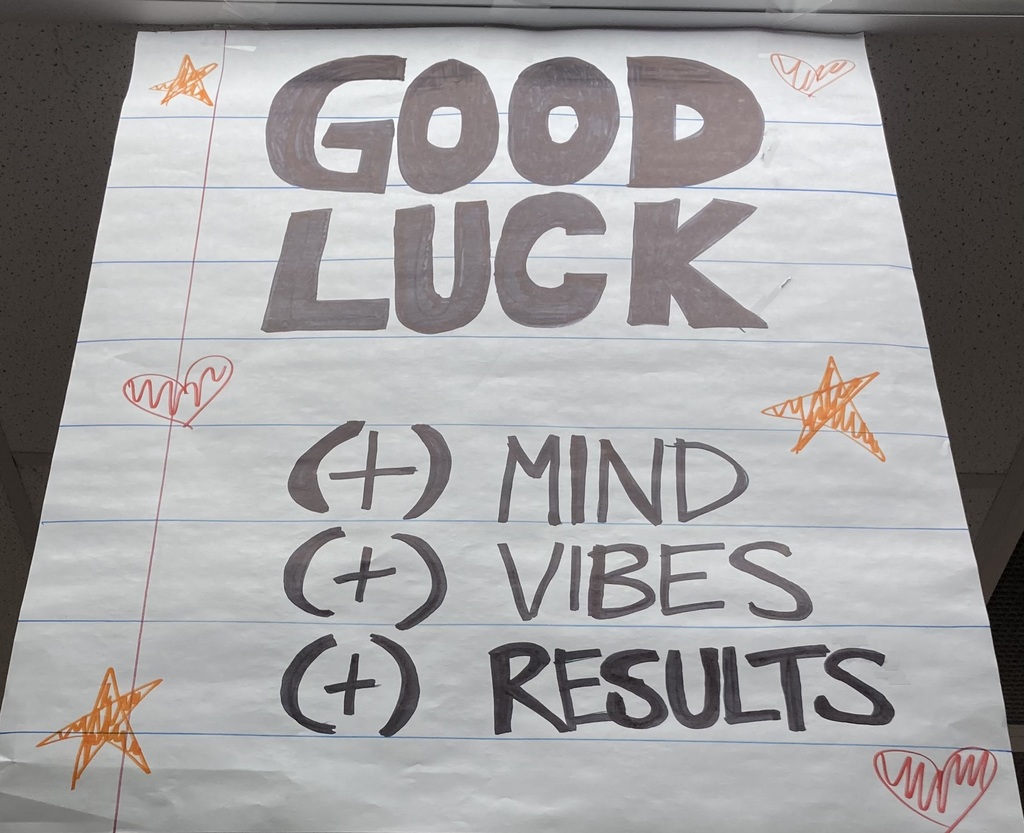 GOOD
LUCK
(+) MIND
(+) VIBES
(+) RESULTS